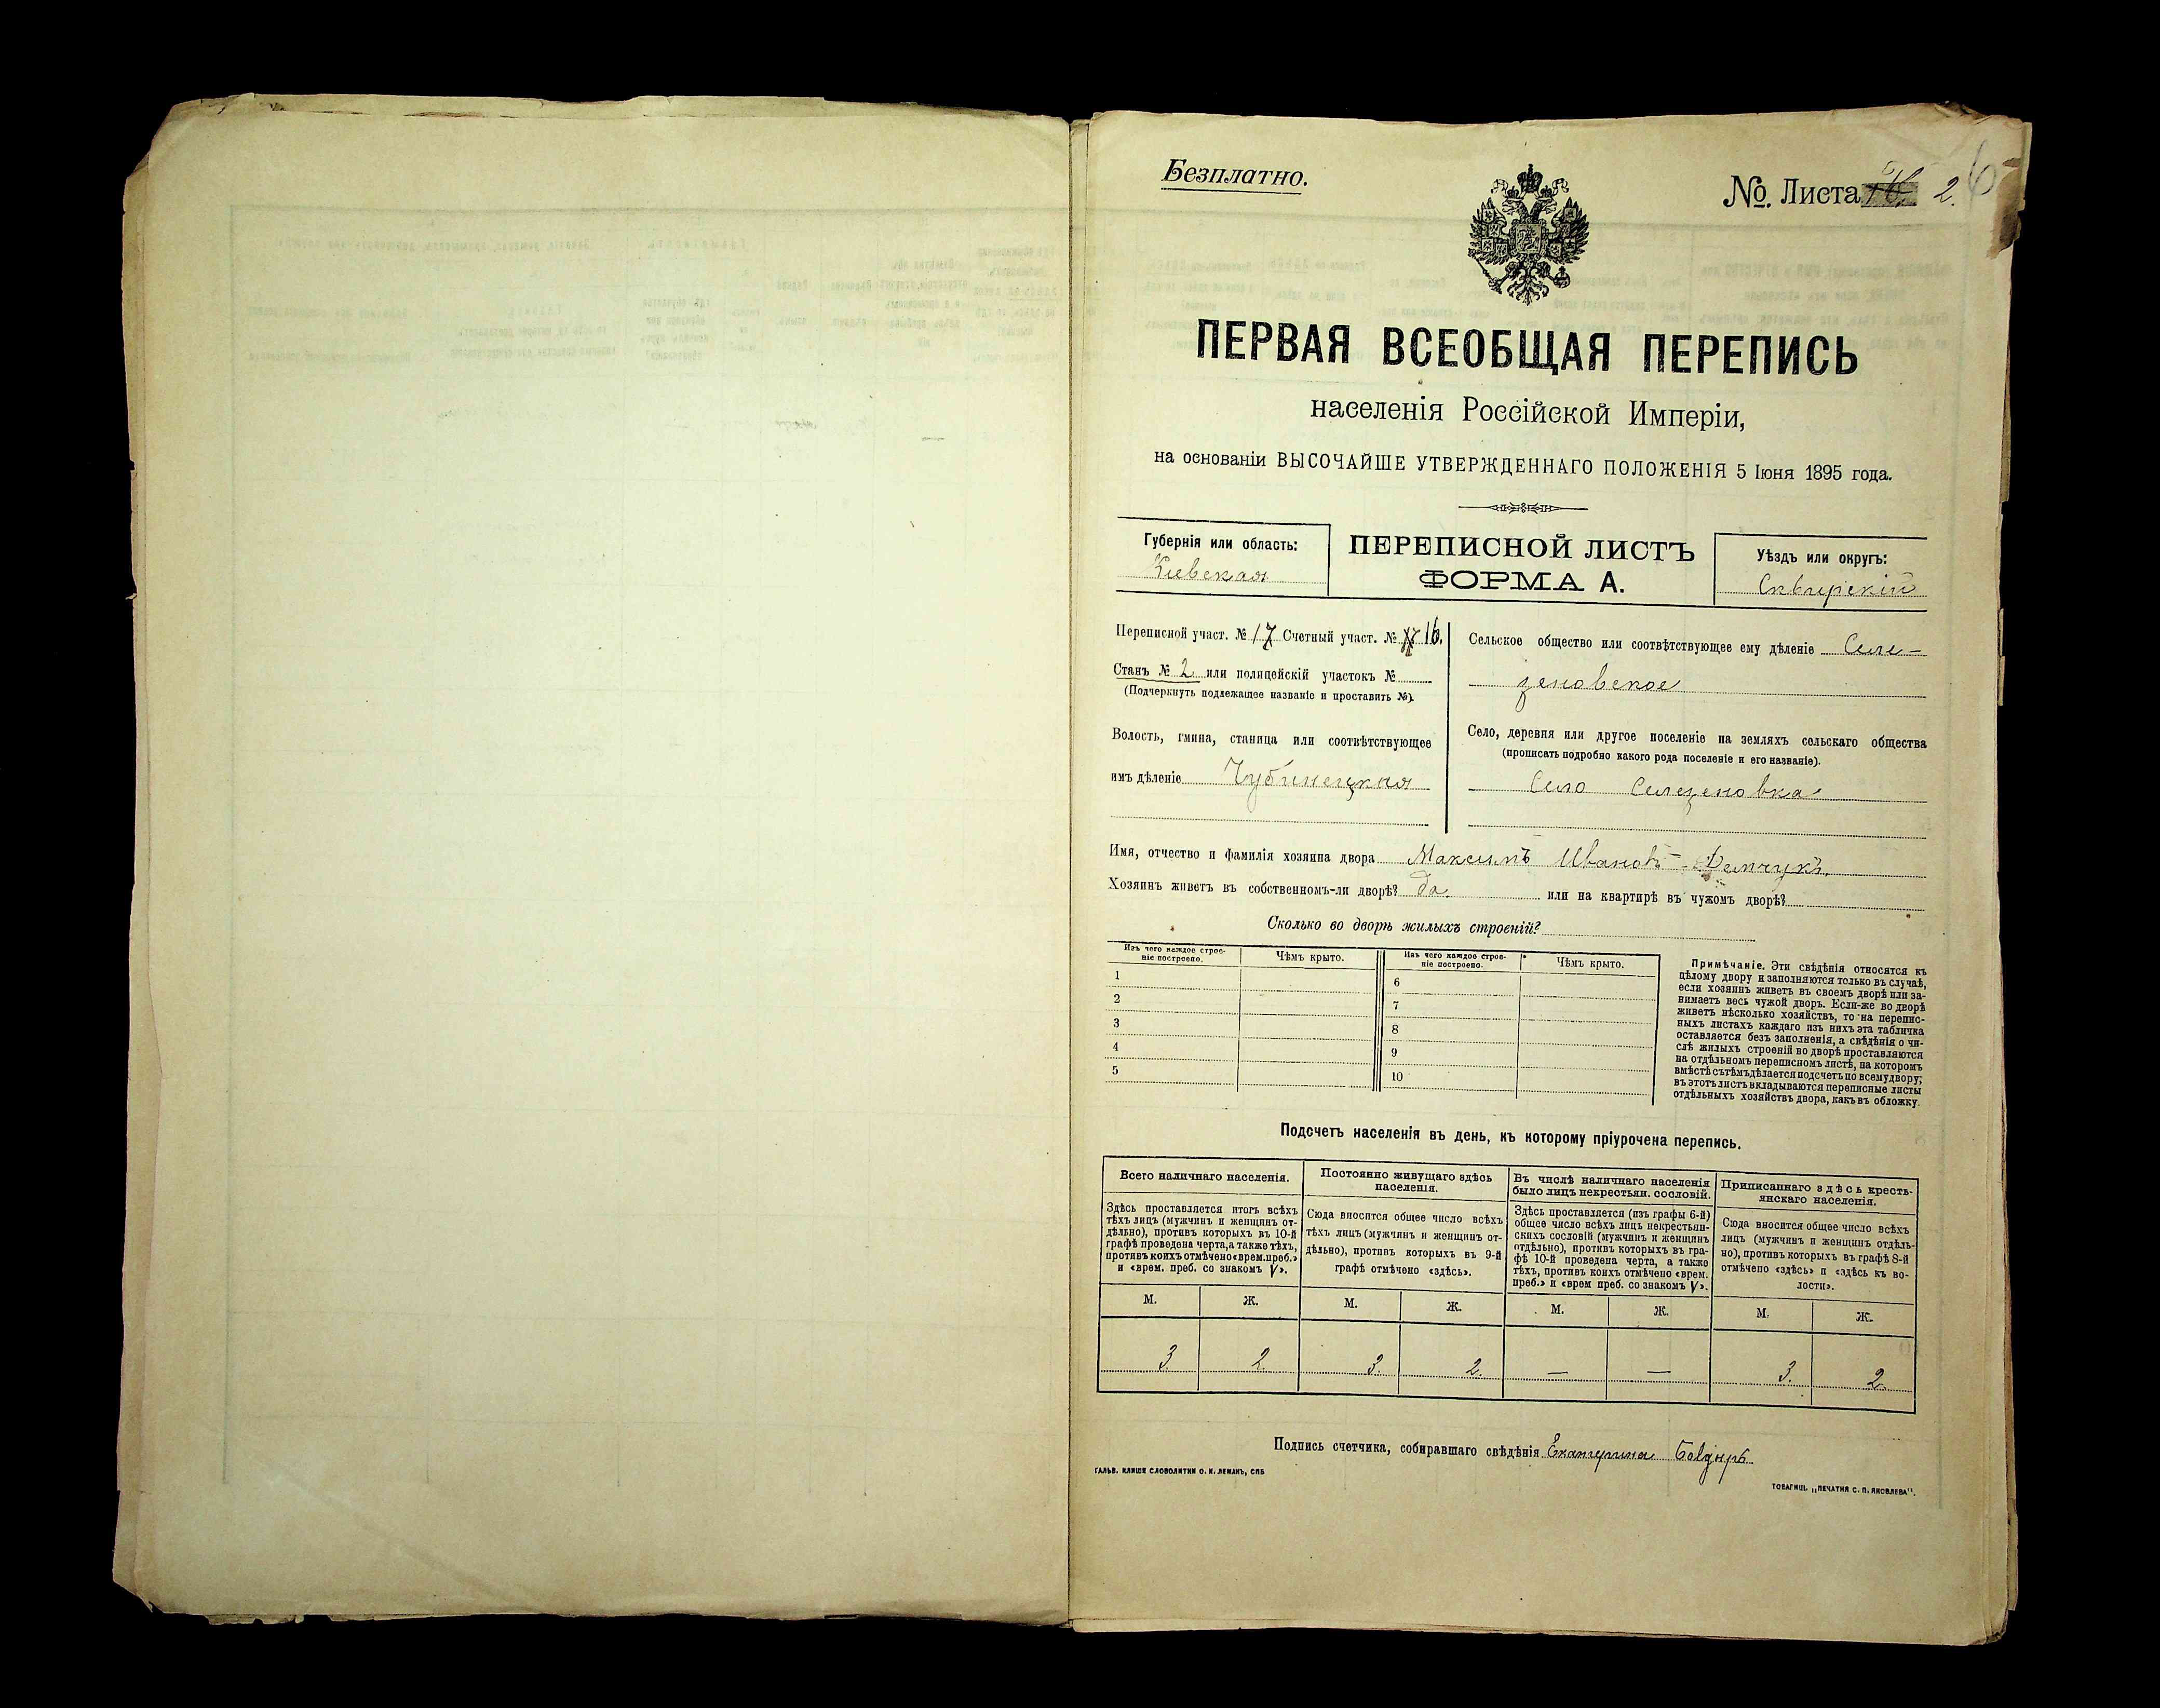 Безплатно.
№. Листа 2.
ПЕРВАЯ ВСЕОБЩАЯ ПЕРЕПИСЬ
населенія Россійской Имперіи,
на основаніи ВЫСОЧАЙШЕ УТВЕРЖДЕННАГО ПОЛОЖЕНІЯ 5 Іюня 1895 года.
Губернія или область:
Кіевская
ПЕРЕПИСНОЙ ЛИСТЪ
ФОРМА А.
Уѣздъ или округъ:
Сквирскій
Переписной участ. № 17 Счетный участ. № 16.
Станъ № 2 или полицейскій участокъ №
(Подчеркнуть подлежащее названіе и проставить №).
Волость, гмина, станица или соотвѣтствующее
имъ дѣленіе Чубинецкая
Сельское общество или соотвѣтствующее ему дѣленіе Селе-
зеновское
Село, деревня или другое поселеніе на земляхъ сельскаго общества
(прописать подробно какого рода поселеніе и его названіе).
Село Селезеновка
Имя, отчество и фамилія хозяина двора Максимъ Ивановъ Демчукъ.
Хозяинъ живетъ въ собственномъ-ли дворѣ? да. или на квартирѣ въ чужомъ дворѣ?
Сколько во дворѣ жилыхъ строеній?
Изъ чего каждое строе-
ніе построено.
Чѣмъ крыто.
Изъ чего каждое строе-
ніе построено.
Чѣмъ крыто.
1
2
3
4
5
6
7
8
9
10
Примѣчаніе. Эти свѣдѣнія относятся къ
цѣлому двору и заполняются только въ случаѣ,
если хозяинъ живетъ въ своемъ дворѣ или за-
нимаетъ весь чужой дворъ. Если-же во дворѣ
живетъ нѣсколько хозяйствъ, то на перепис-
ныхъ листахъ каждаго изъ нихъ эта табличка
оставляется безъ заполненія, а свѣдѣнія о чи-
слѣ жилыхъ строеній во дворѣ проставляются
на отдѣльномъ переписномъ листѣ, на которомъ
вмѣстѣ съ тѣмъ дѣлается подсчетъ по всему двору;
въ этотъ листъ вкладываются переписные листы
отдѣльныхъ хозяйствъ двора, какъ въ обложку.
Подсчетъ населенія въ день, къ которому пріурочена перепись.
Всего наличнаго населенія.
Здѣсь проставляется итогъ всѣхъ
тѣхъ лицъ (мужчинъ и женщинъ от-
дѣльно), противъ которыхъ въ 10-й
графѣ проведена черта, а также тѣхъ,
противъ коихъ отмѣчено «врем. преб.»
и «врем. преб. со знакомъ V».
Постоянно живущаго здѣсь
населенія.
Сюда вносится общее число всѣхъ
тѣхъ лицъ (мужчинъ и женщинъ от-
дѣльно), противъ которыхъ въ 9-й
графѣ отмѣчено «здѣсь».
Въ числѣ наличнаго населенія
было лицъ некрестьян. сословій.
Здѣсь проставляется (изъ графы 6-й)
общее число всѣхъ лицъ некрестьян-
скихъ сословій (мужчинъ и женщинъ
отдѣльно), противъ которыхъ въ гра-
фѣ 10-й проведена черта, а также
тѣхъ, противъ коихъ отмѣчено «врем.
преб.» и «врем преб. со знакомъ V».
Приписаннаго здѣсь кресть-
янскаго населенія.
Сюда вносится общее число всѣхъ
лицъ (мужчинъ и женщинъ отдѣль-
но), противъ которыхъ въ графѣ 8-й
отмѣчено «здѣсь» и «здѣсь къ во-
лости».
М. Ж. М. Ж. М. Ж. М. Ж.
3. 2. 3. 2. — — 3. 2.
Подпись счетчика, собиравшаго свѣдѣнія Екатерина
ГАЛЬВ. КЛИШЕ СЛОВОЛИТНИ О. И. ЛЕМАНЪ, СПБ
ТОВАРИЩ. „ПЕЧАТНЯ С. П. ЯКОВЛЕВА".